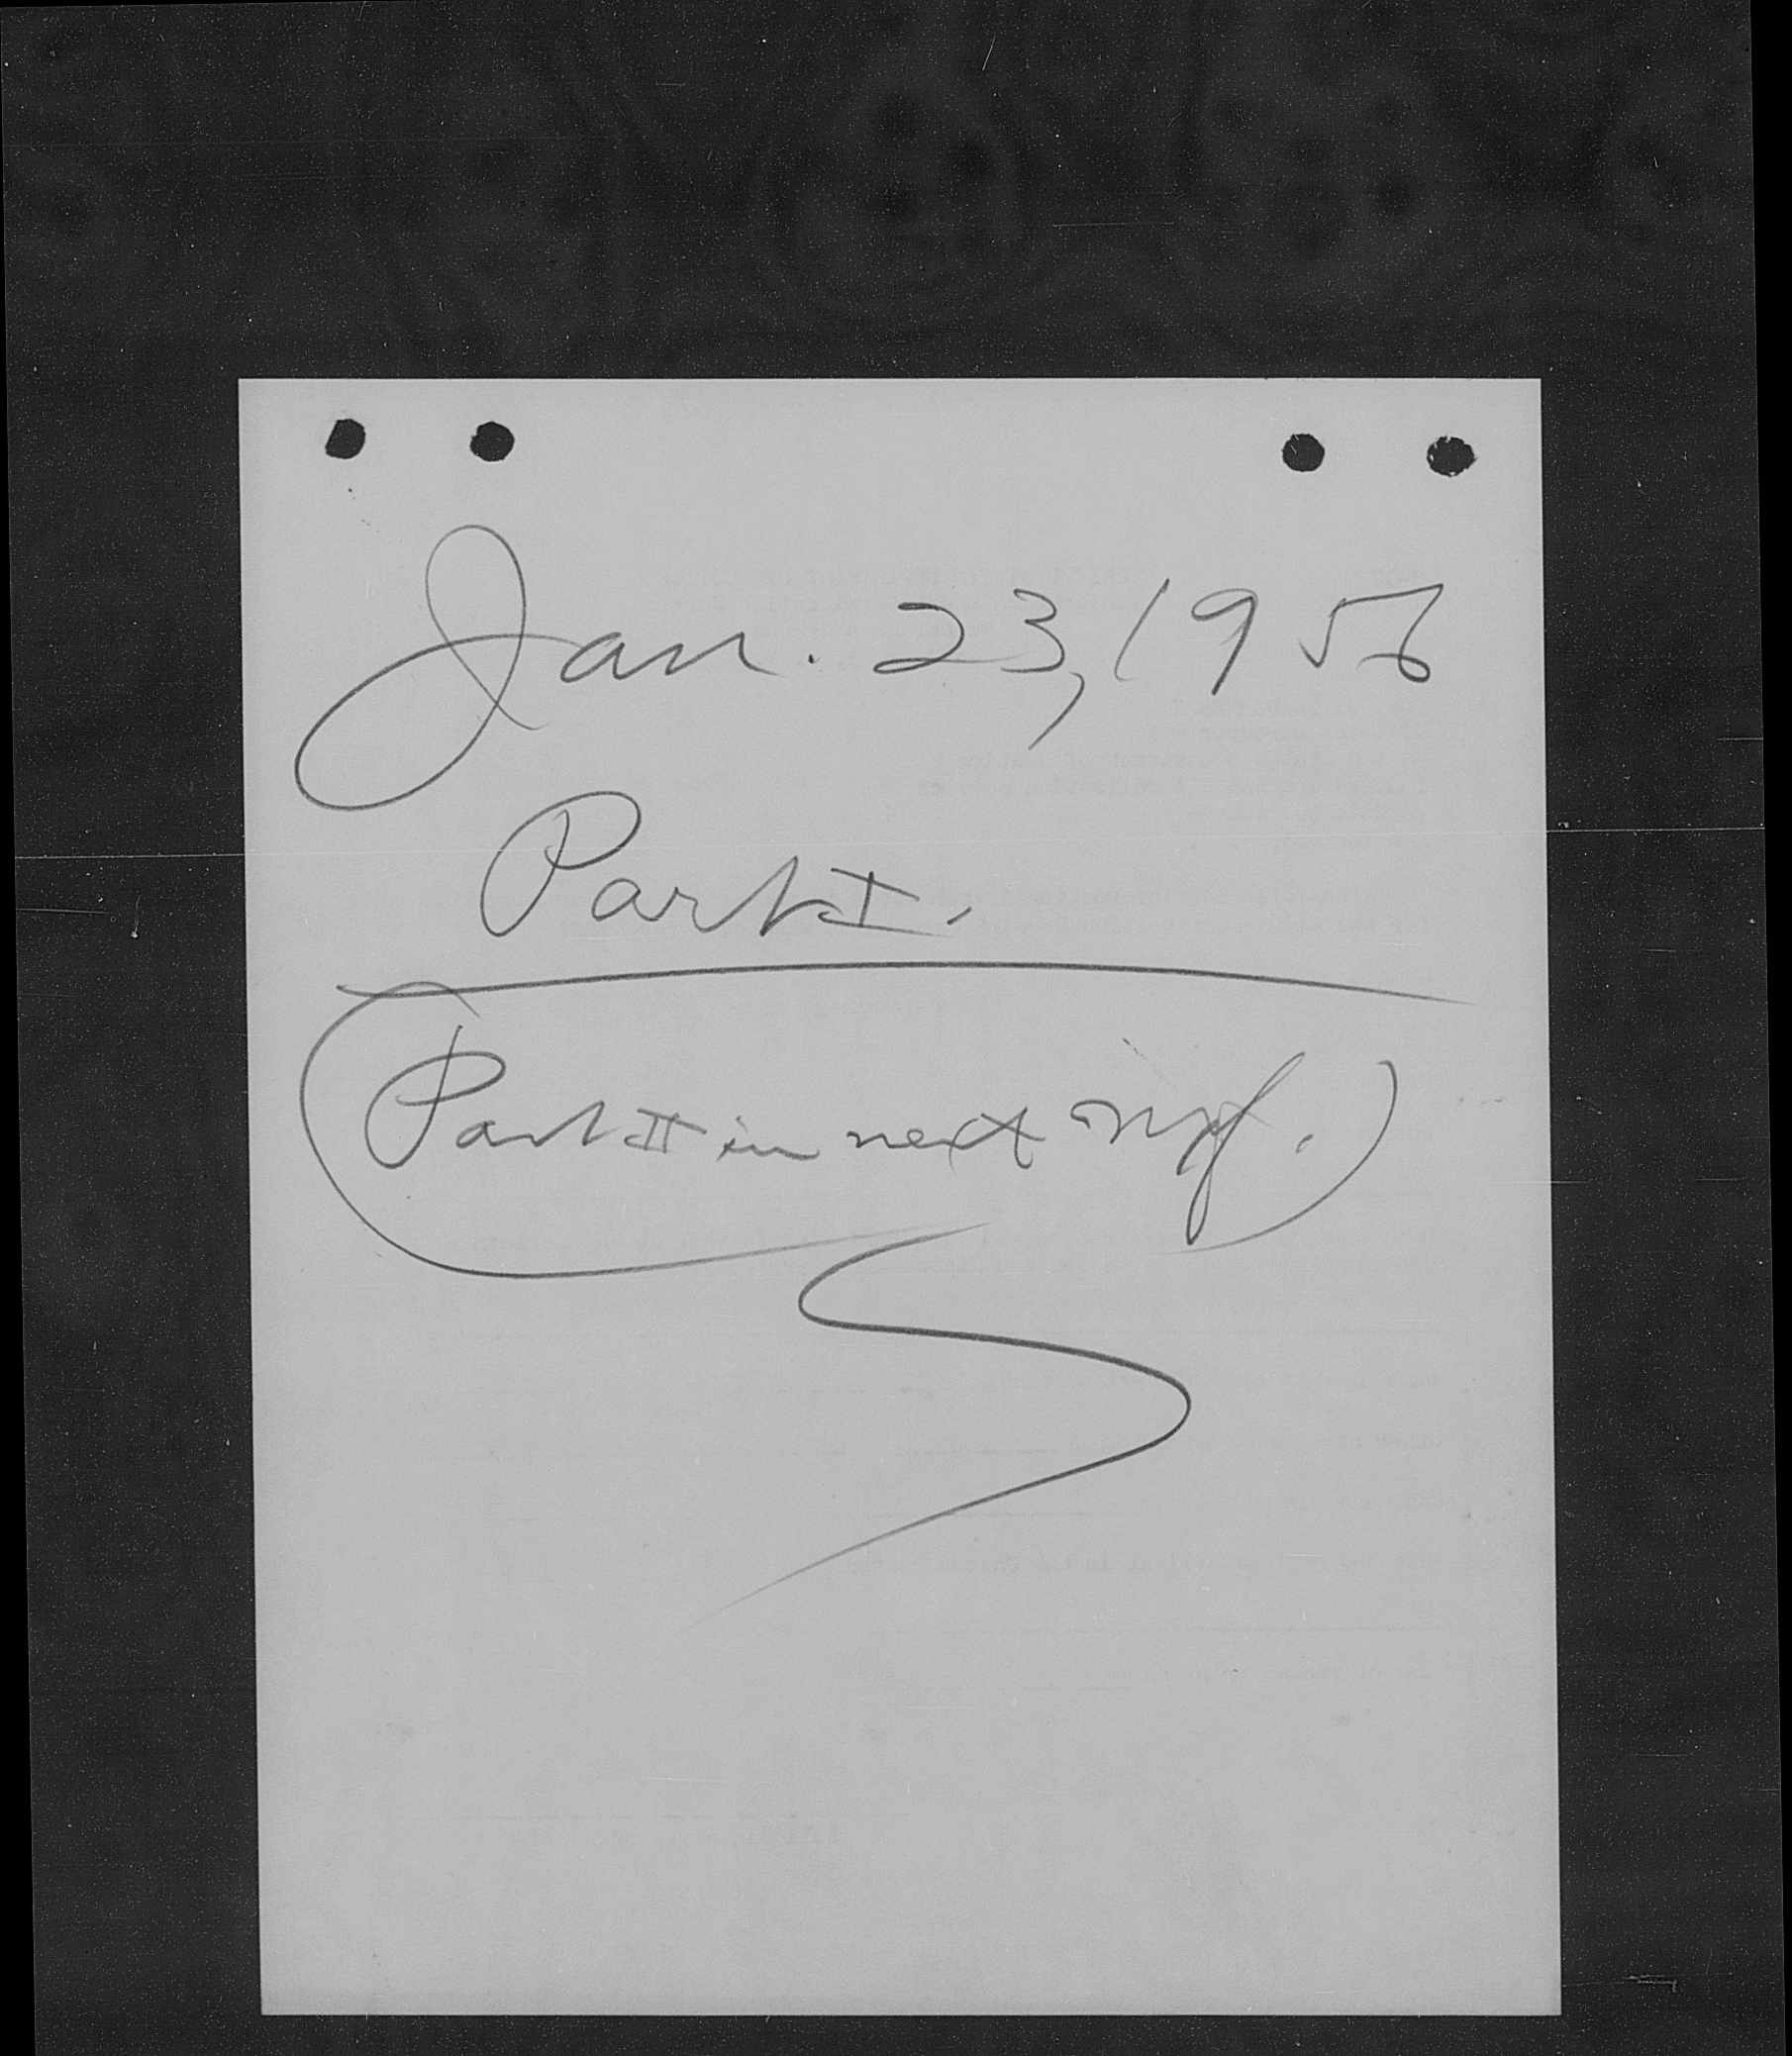 Jan. 23, 1956
Part I.
(Part II in next